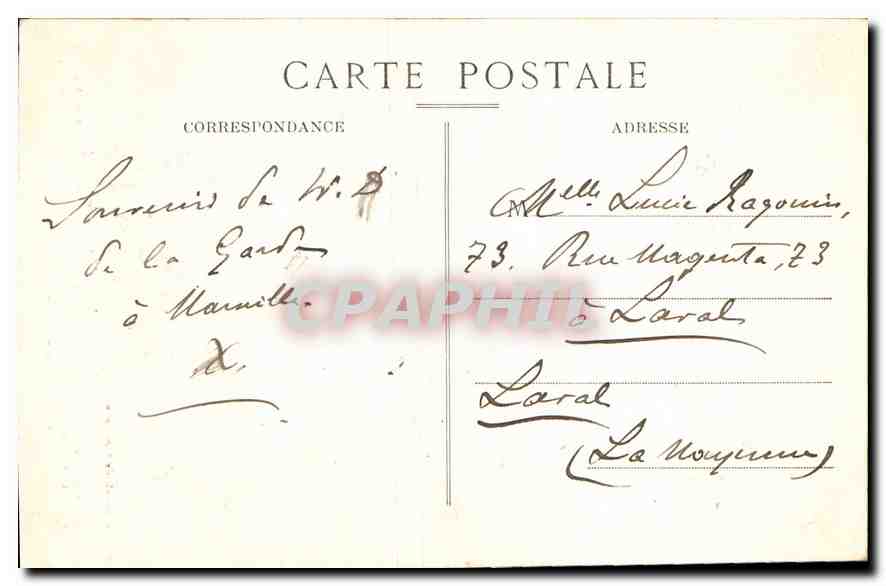 CARTE POSTALE
CORRESPONDANCE
Souvenir de N. D
de la Garde
à Marseille.
X.
ADRESSE
Melle Lucie Ragouin,
73. Rue Magenta, 73
à Laval
Laval
(La Mayenne)
CPAPHIL